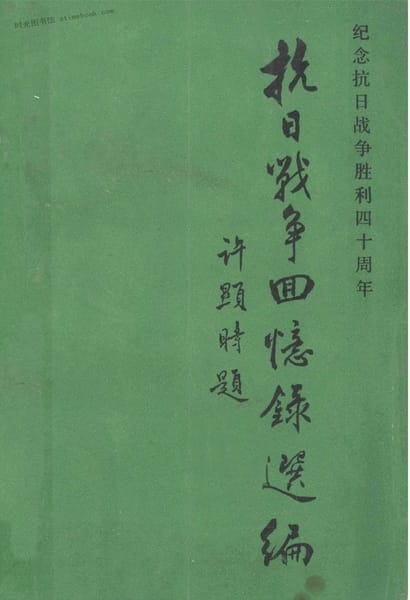 时光图书馆 etimebook.com
纪念抗日战争胜利四十周年
抗日戰争回憶録選编
许顕時題